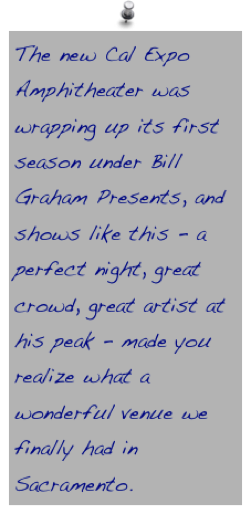 The new Cal Expo
Amphitheater was
wrapping up its first
season under Bill
Graham Presents, and
shows like this - a
perfect night, great
crowd, great artist at
his peak - made you
realize what a
wonderful venue we
finally had in
Sacramento.